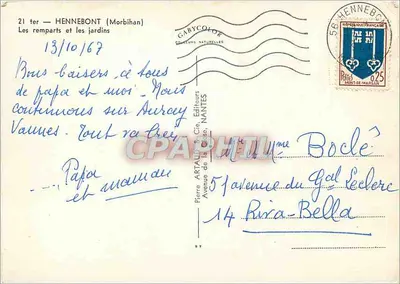 21 ter — HENNEBONT (Morbihan)
Les remparts et les jardins
13/10/67
Bons baisers à tous
de papa et moi - Nous
continuons sur Auray
Vannes. Tout va bien
Papa
et maman
GABYCOLOR
COULEURS NATURELLES
Pierre ARTAUD & Cie, Editeurs
Avenue de la Close, NANTES
56 HENNEBONT
REPUBLIQUE FRANCAISE
0,25
MONT-DE-MARSAN
Mr & Mme Boclé
5 avenue du Gal Leclerc
14 Riva-Bella